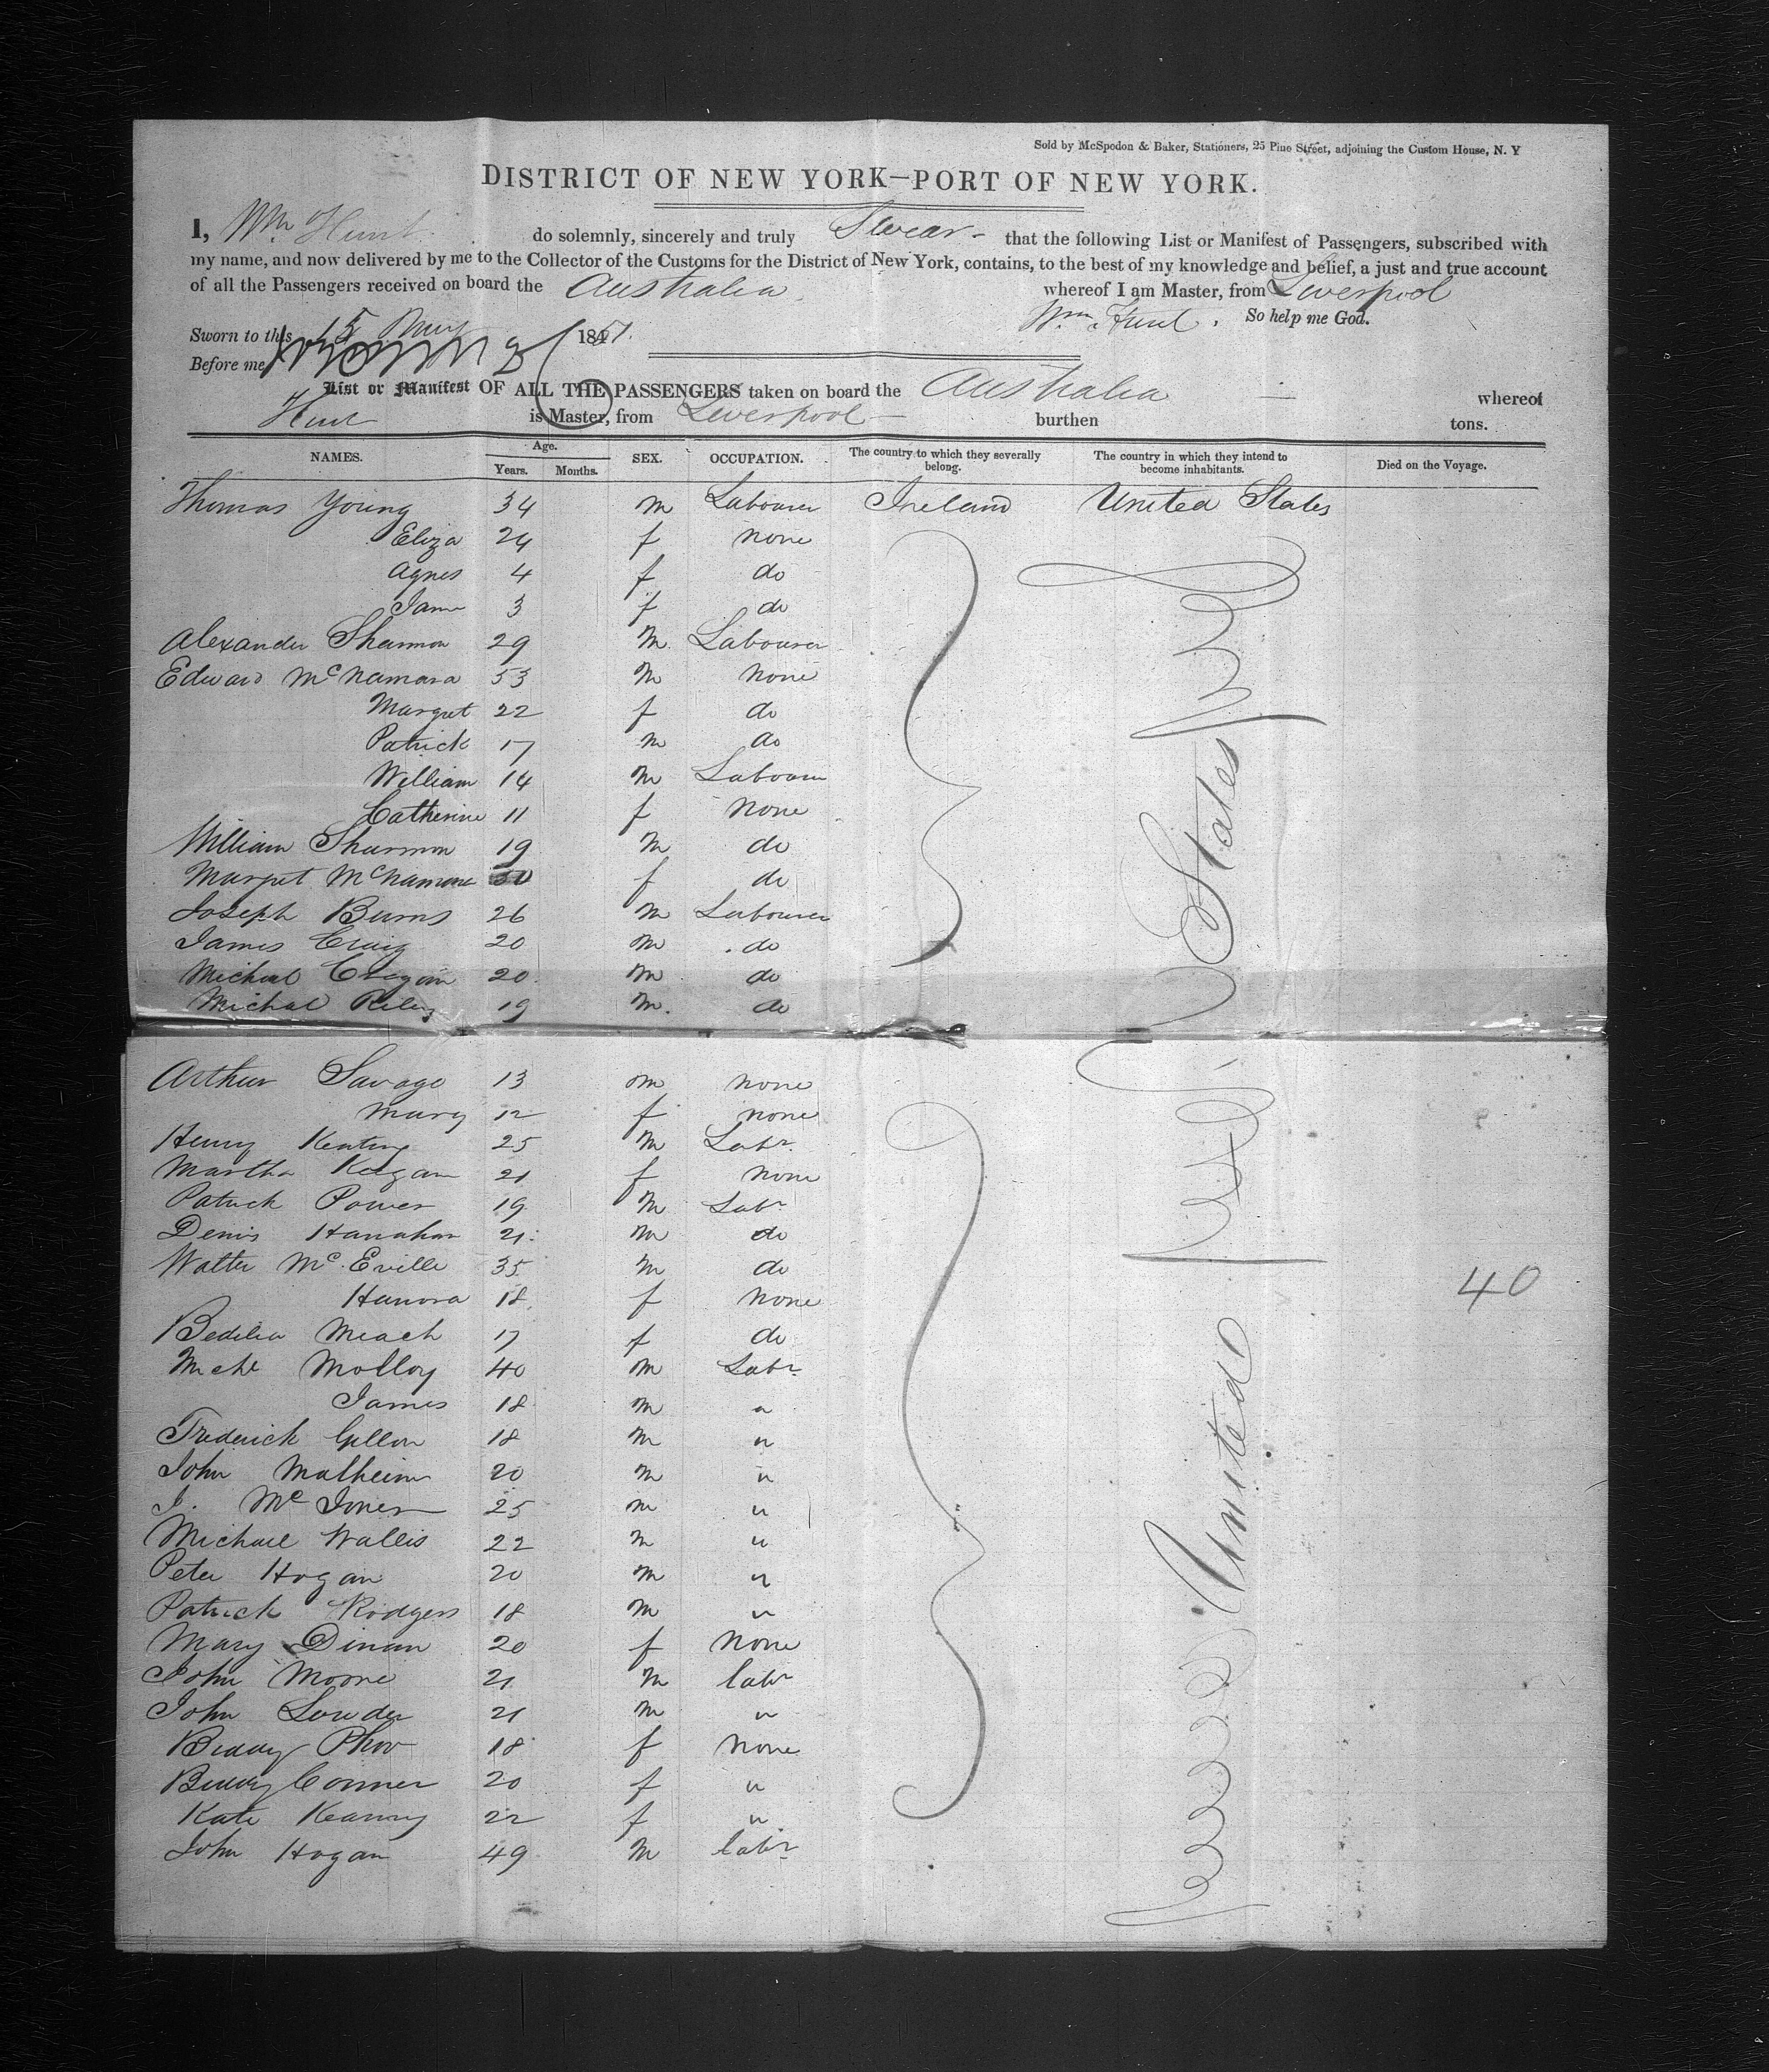 Sold by McSpedon & Baker, Stationers, 25 Pine Street, adjoining the Custom House, N. Y
DISTRICT OF NEW YORK—PORT OF NEW YORK.
I, Wm Hunt do solemnly, sincerely and truly Swear - that the following List or Manifest of Passengers, subscribed with
my name, and now delivered by me to the Collector of the Customs for the District of New York, contains, to the best of my knowledge and belief, a just and true account
of all the Passengers received on board the Australia whereof I am Master, from Liverpool
Wm. Hunt. So help me God.
Sworn to this 15 May 1851.
Before me
List or Manifest OF ALL THE PASSENGERS taken on board the Australia — whereof
Hunt is Master, from Liverpool — burthen tons.
NAMES. Age. Years. Months. SEX. OCCUPATION. The country to which they severally belong. The country in which they intend to become inhabitants. Died on the Voyage.
Thomas Young 34 m Labourer Ireland United States
Eliza 24 f none
Agnes 4 f do
Jane 3 f do
Alexander Shannon 29 m Labourer
Edward McNamara 53 m none
Margret 22 f do
Patrick 17 m do
William 14 m Labourer
Catherine 11 f none
William Shannon 19 m do
Margret McNamara 30 f do
Joseph Burns 26 m Labourer
James Craig 20 m do
Michael Cragan 20 m do
Michal Riley 19 m. do
Arthur Savage 13 m none
Mary 12 f none
Henry Keating 25 m Labr.
Martha Keegan 21 f none
Patrick Power 19 m Labr
Denis Hanahan 21 m do
Walter McEville 35 m do
Hanora 18 f none
Bedelia Meach 17 f do
Michl Molloy 40 m Labr.
James 18 m "
Frederick Gillon 18 m "
John Matheim 20 m "
J. McJones 25 m "
Michael Wallis 22 m "
Peter Hogan 20 m "
Patrick Rodgers 18 m "
Mary Dinan 20 f none
John Moore 21 m labr
John Lowder 21 m "
Biddy 18 f none
Biddy Conner 20 f "
Kate Keanny 22 f "
John Hogan 49 m labr
United States
40